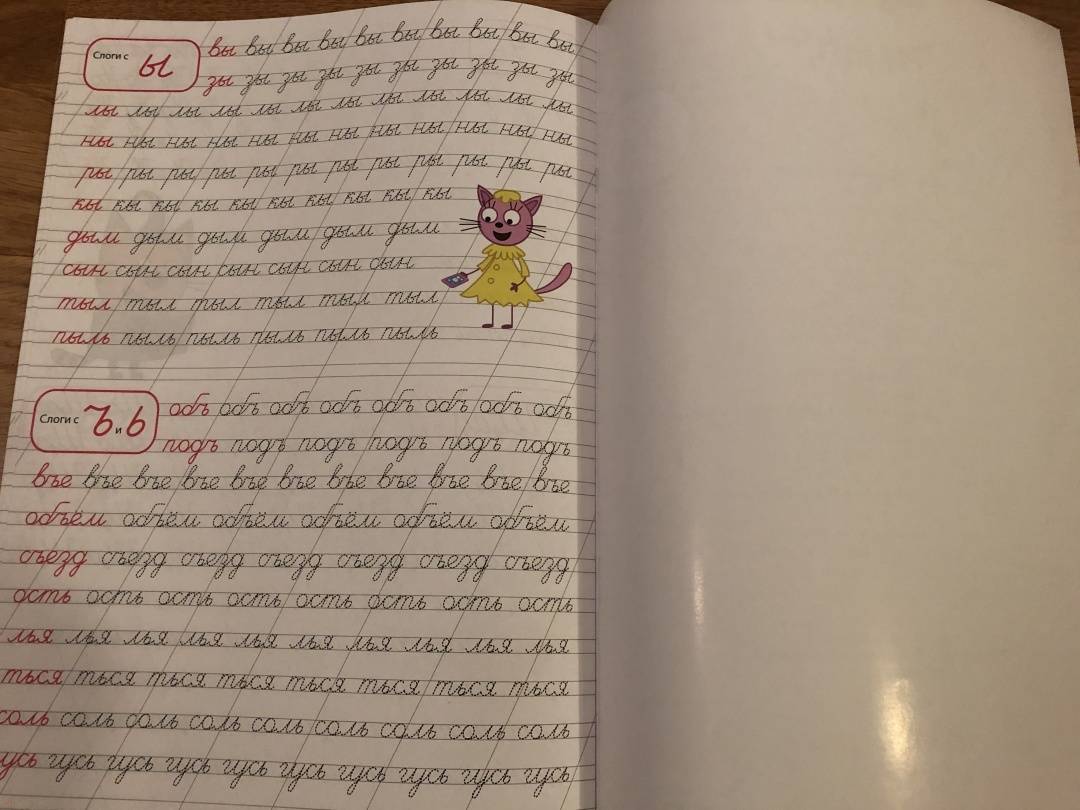 Слоги с ы вы вы вы вы вы вы вы вы вы вы
зы зы зы зы зы зы зы зы зы зы
лы лы лы лы лы лы лы лы лы лы лы лы
ны ны ны ны ны ны ны ны ны ны ны ны
ры ры ры ры ры ры ры ры ры ры ры ры
кы кы кы кы кы кы кы кы кы кы
дым дым дым дым дым дым
сын сын сын сын сын сын сын
тыл тыл тыл тыл тыл тыл
пыль пыль пыль пыль пыль пыль
Слоги с Ъ и Ь объ объ объ объ объ объ объ объ
подъ подъ подъ подъ подъ подъ
въе въе въе въе въе въе въе въе въе въе въе
объём объём объём объём объём объём
съезд съезд съезд съезд съезд съезд съезд
ость ость ость ость ость ость ость ость
лья лья лья лья лья лья лья лья лья лья
ться ться ться ться ться ться ться ться
соль соль соль соль соль соль соль соль соль
усь гусь гусь гусь гусь гусь гусь гусь гусь гусь